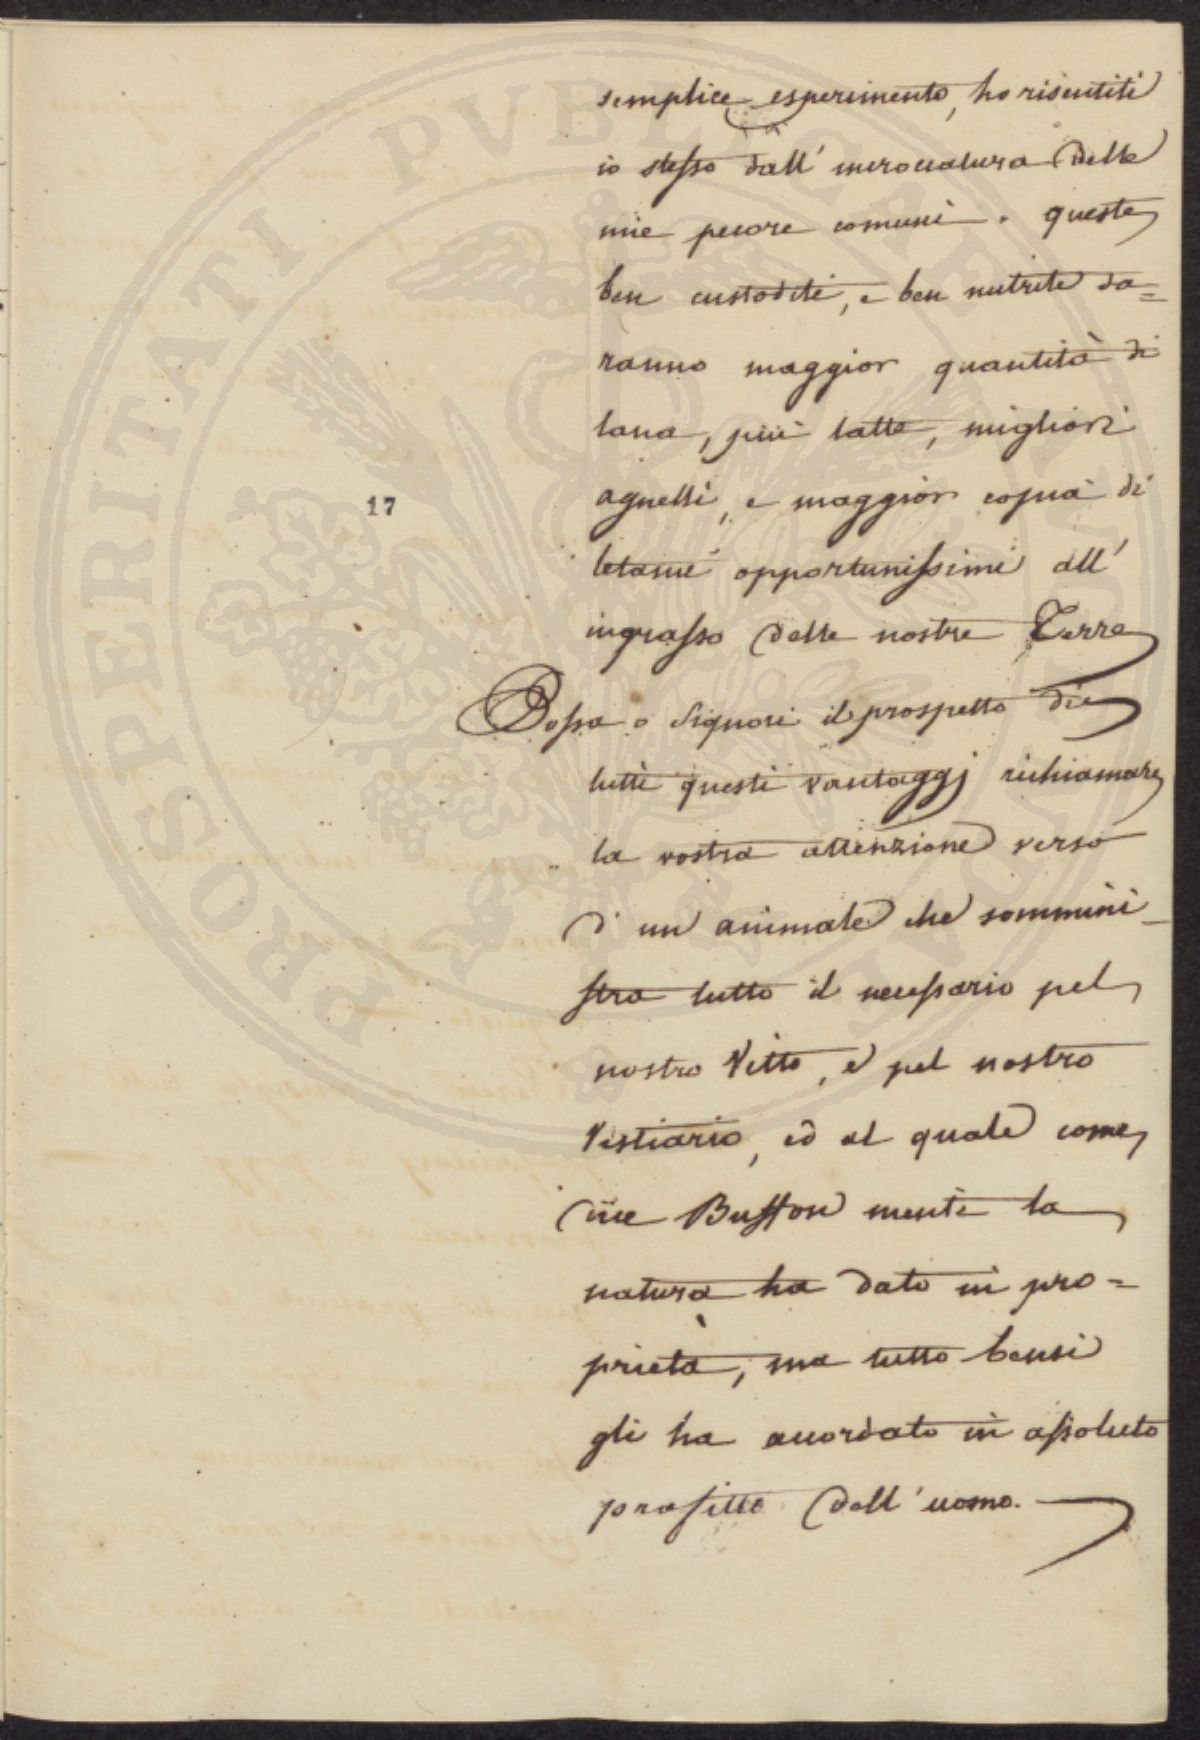 semplice esperimento, ho risentiti
io stesso dall' incrociatura delle
mie pecore comuni. queste
ben custodite, e ben nutrite da=
ranno maggior quantità di
lana, più latte, migliori
agnelli, e maggior copia di
17
letame opportunissimi all'
ingrasso delle nostre Terre
Possa o Signori il prospetto di
tutti questi vantaggj richiamare
la vostra attenzione verso
d' un animale che sommini-
stra tutto il necessario pel
nostro Vitto, e pel nostro
Vestiario, ed al quale come
dice Buffon niente la
natura ha dato in pro=
prietà, ma tutto bensi
gli ha accordato in assoluto
profitto dell' uomo.
PROSPERITATI PVBLICAE